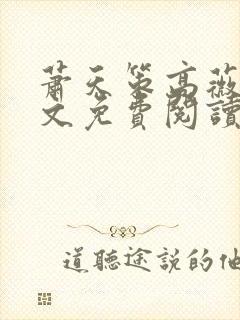 蕭天策高薇
文免費閱讀
道聽途說的他